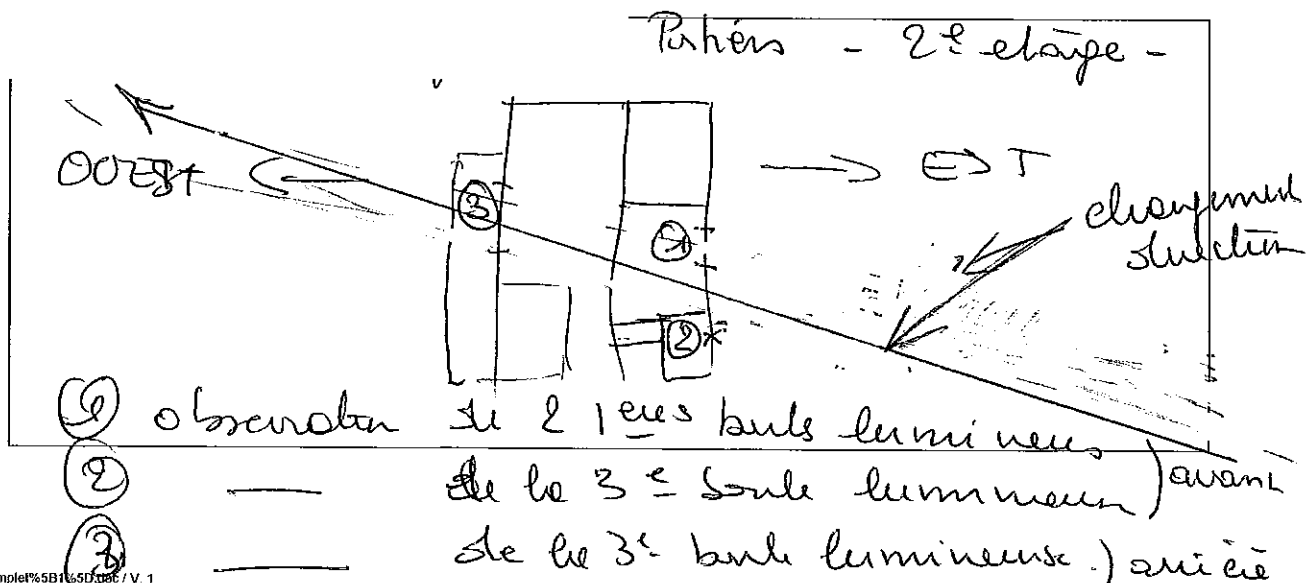 Poitiers - 2e étage -
OUEST
EST
3
1
2
changement
direction
① observation de 2 1eres boules lumineuses
② — de la 3e boule lumineuse ) avant
③ — de la 3e boule lumineuse ) arrière
mplet%5B1%5D.doc / V. 1